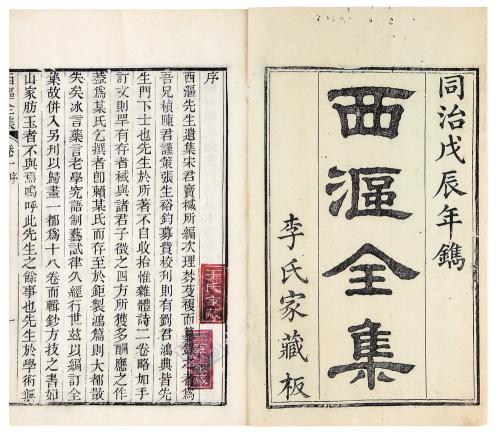 同治戊辰年鐫
西漚全集
李氏家藏板
序
西漚先生遺集宋君寶械所編次理棼芟複而
吾兄楨陳君謹策張生裕鈞募費校刊則有劉君鴻典皆先
生門下士也先生於所著不自收拾惟雜體詩二卷略加手
訂文則罕有存者械與諸君子徵之四方所獲多酬應之作
葢爲某氏乞撰者卽賴某氏而存至於鉅製鴻篇則大都散
失矣冰言藥言老學究語制藝試律久經行世茲以編訂全
集故併入另列以歸畫一都爲十八卷而輯鈔方技之書如
山家肪玉者不與焉嗚呼此先生之餘事也先生於學術
西漚全集 卷一序
王氏家藏